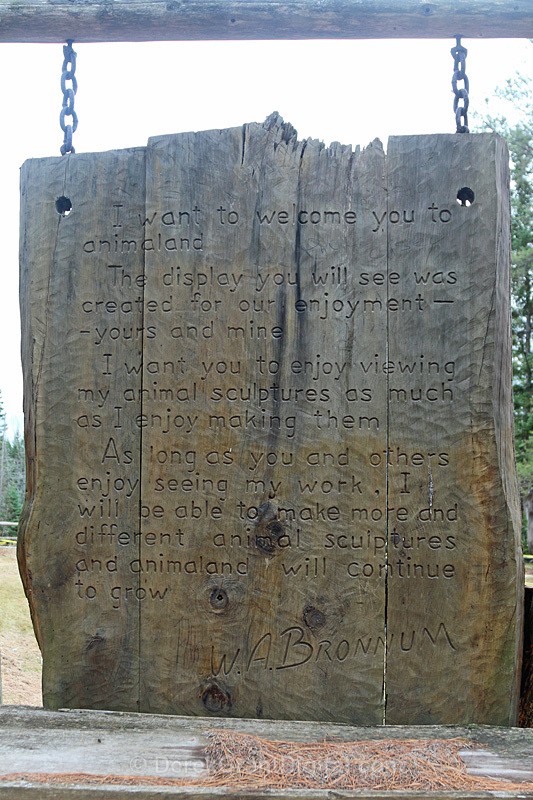 I want to welcome you to
animaland
The display you will see was
created for our enjoyment —
-yours and mine
I want you to enjoy viewing
my animal sculptures as much
as I enjoy making them
As long as you and others
enjoy seeing my work, I
will be able to make more and
different animal sculptures
and animaland will continue
to grow
W.A. BRONNUM